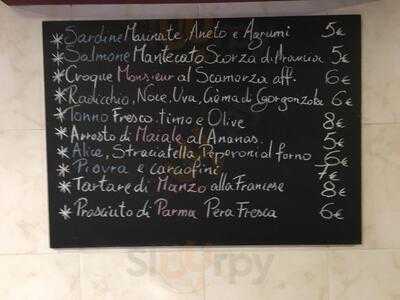 * Sardine Marinate, Aneto e Agrumi 5€
* Salmone Mantecato Scorza di Arancia 5€
* Croque Monsieur al Scamorza aff. 6€
* Radicchio, Noce, Uva, Crema di Gorgonzola 6€
* Tonno Fresco. timo e Olive 8€
* Arrosto di Maiale al Ananas. 5€
* Alice, Straciatella, Peperoni al forno 6€
* Piovra e carciofini 7€
* Tartare di Manzo alla Francese 8€
* Prosciuto di Parma Pera Fresca 6€
Sluurpy